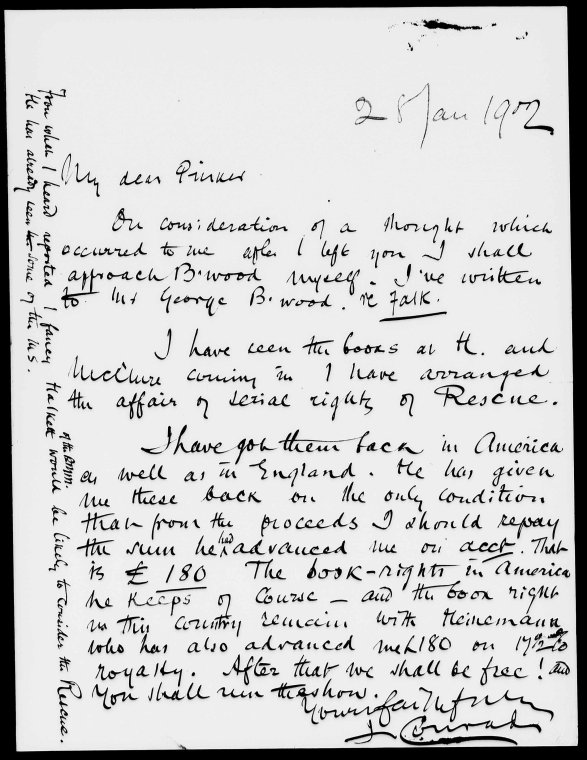 28 Jan 1902
My dear Pinker
On consideration of a thought which
occurred to me after I left you I shall
approach B'wood myself. I've written
to Mr George B'wood. re Falk.
I have seen the books at H. and
McClure coming in I have arranged
the affair of serial rights of Rescue.
I have got them back in America
as well as in England. He has given
me these back on the only condition
that from the proceeds I should repay
the sum he had advanced me on acct. That
is £ 180 The book-rights in America
he keeps of course – and the book right
in this country remain with Heinemann
who has also advanced me £180 on
royalty. After that we shall be free! and
You shall run the show.
Yours faithfully
J Conrad
From what I heard reported I fancy Halkett of the PMM. would be likely to consider the Rescue.
He has already seen some of the MS.